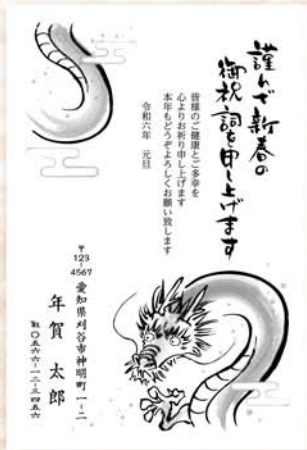 謹んで新春の
御祝詞を申し上げます
皆様のご健康とご多幸を
心よりお祈り申し上げます
本年もどうぞよろしくお願い致します
令和六年　元旦
〒
123
-
4567
愛知県刈谷市神明町一-二
年賀　太郎
℡〇五六六-一二-三四五六